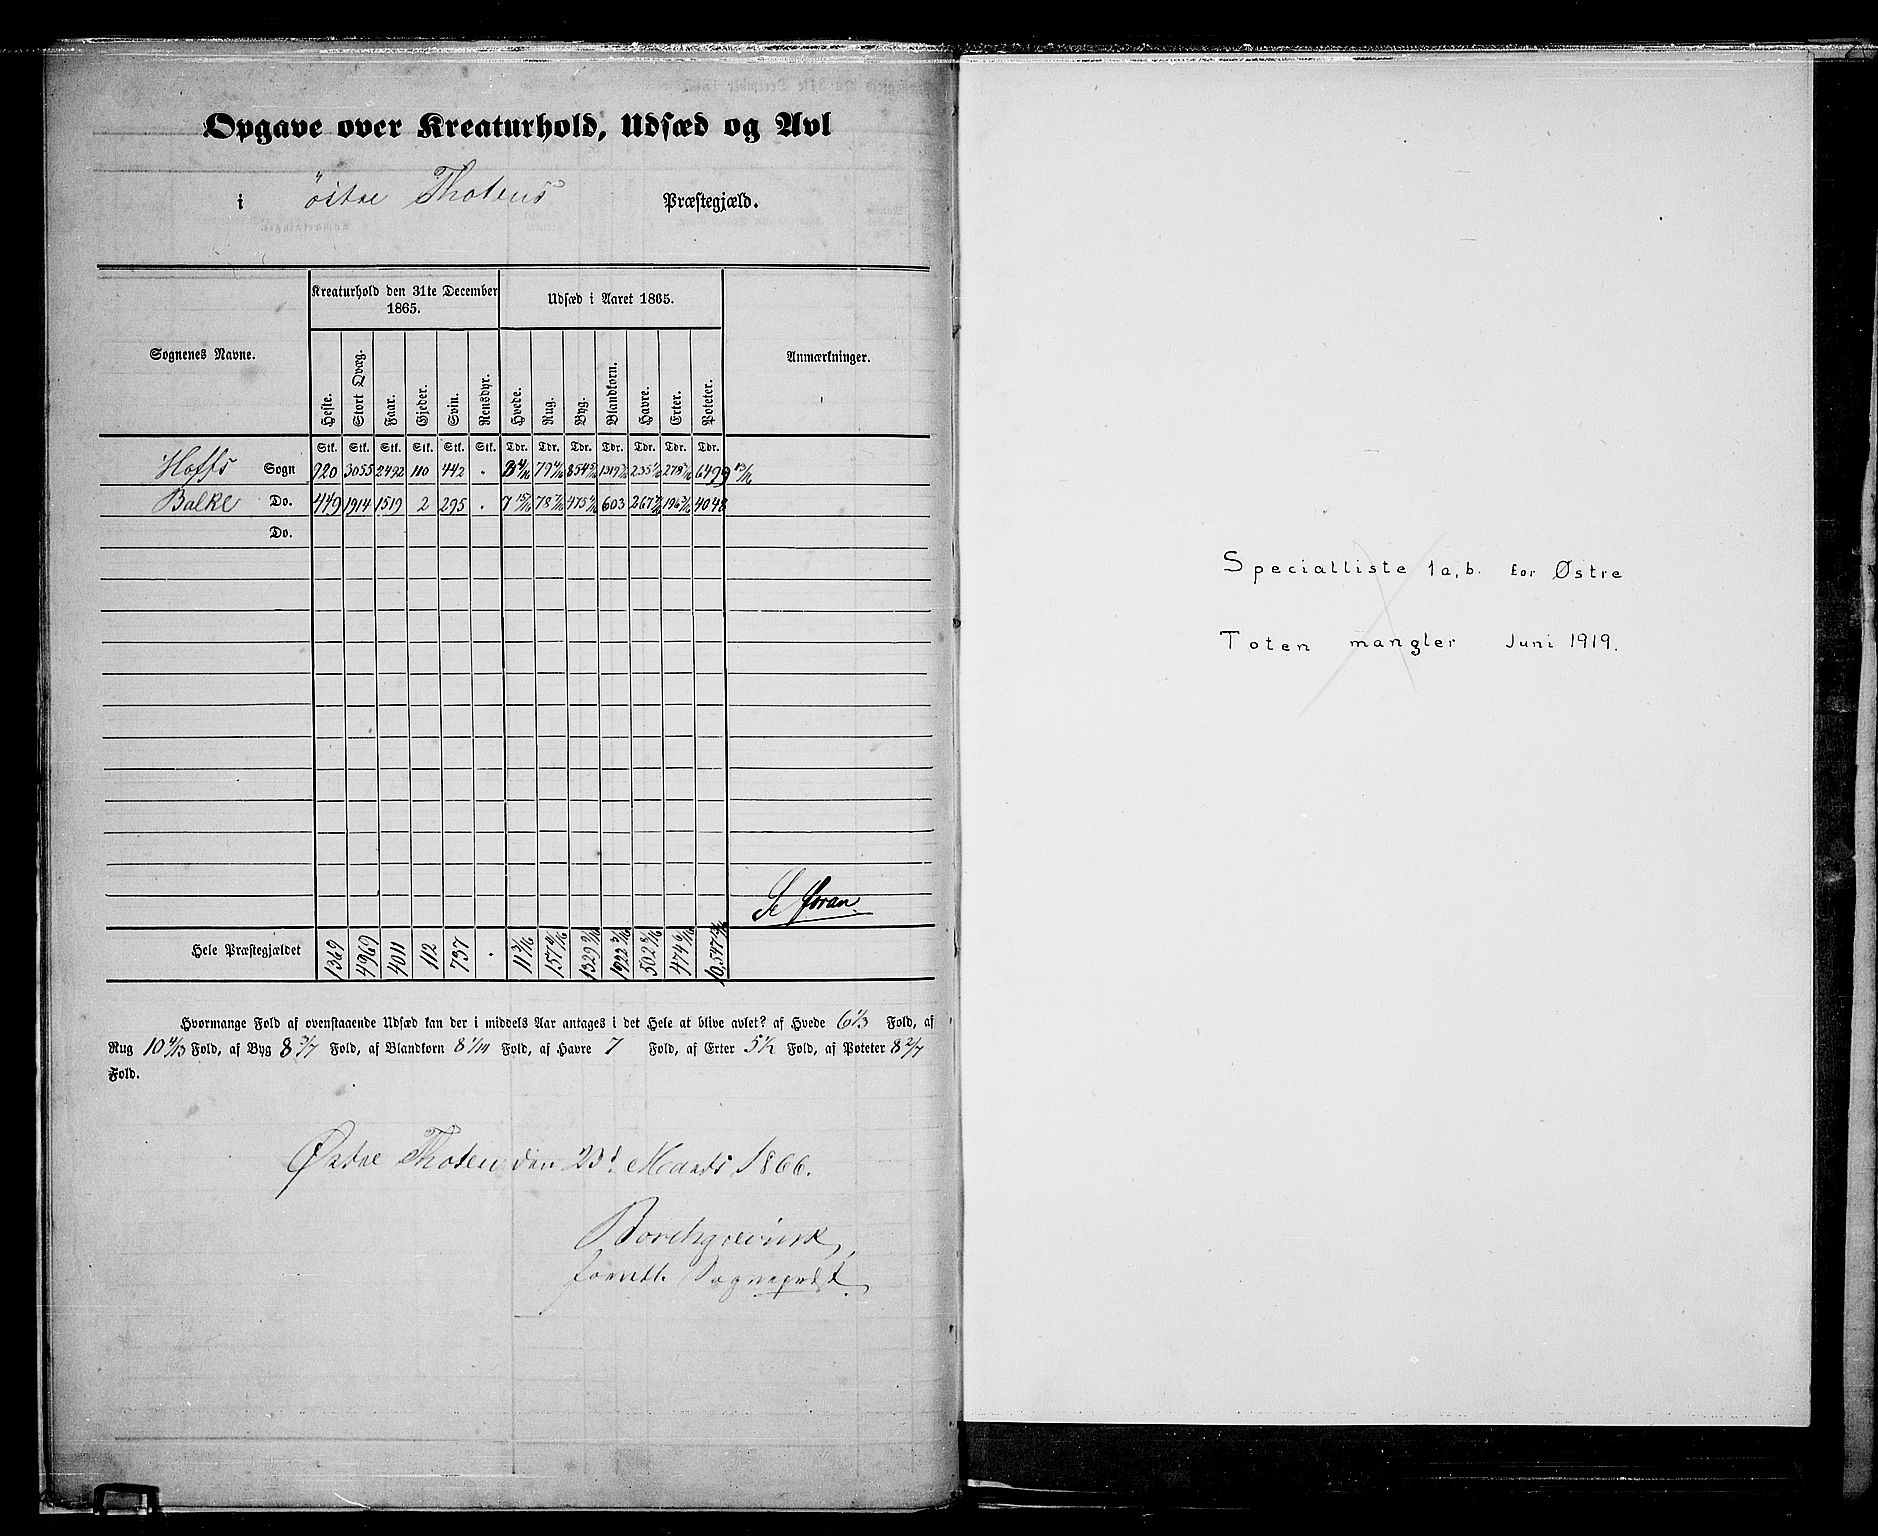 Opgave over Kreaturhold, Udsæd og Avl
i Østre Thotens Præstegjæld.
Sognenes Navne.
Kreaturhold den 31te December 1865.
Udsæd i Aaret 1865.
Anmærkninger.
Heste. Stort Qvæg. Faar. Gjeder. Svin. Rensdyr. Hvede. Rug. Byg. Blandkorn. Havre. Erter. Poteter.
Stk. Stk. Stk. Stk. Stk. Stk. Tdr. Tdr. Tdr. Tdr. Tdr. Tdr. Tdr.
Hoffs Sogn 920 3055 2492 110 442 . 3 4/16 79 4/16 854 5/16 1319 235 278 6499 13/16
Balke Do. 449 1914 1519 2 295 . 7 15/16 78 7/16 475 4/16 603 267 196 4048
Do.
Hele Præstegjældet 1369 4969 4011 112 737 . 11 3/16 157 1329 9/16 1922 3/16 502 474 10.547
Hvormange Fold af ovenstaaende Udsæd kan der i middels Aar antages i det Hele at blive avlet? af Hvede 6 1/3 Fold, af
Rug 10 4/13 Fold, af Byg 8 3/7 Fold, af Blandkorn 8 1/14 Fold, af Havre 7 Fold, af Erter 5 1/2 Fold, af Poteter 8 2/7
Fold.
Østre Thoten den 23d Marts 1866.
Borchgrevink,
Sognepræst.
Specialliste 1a,b. for Østre
Toten mangler Juni 1919.